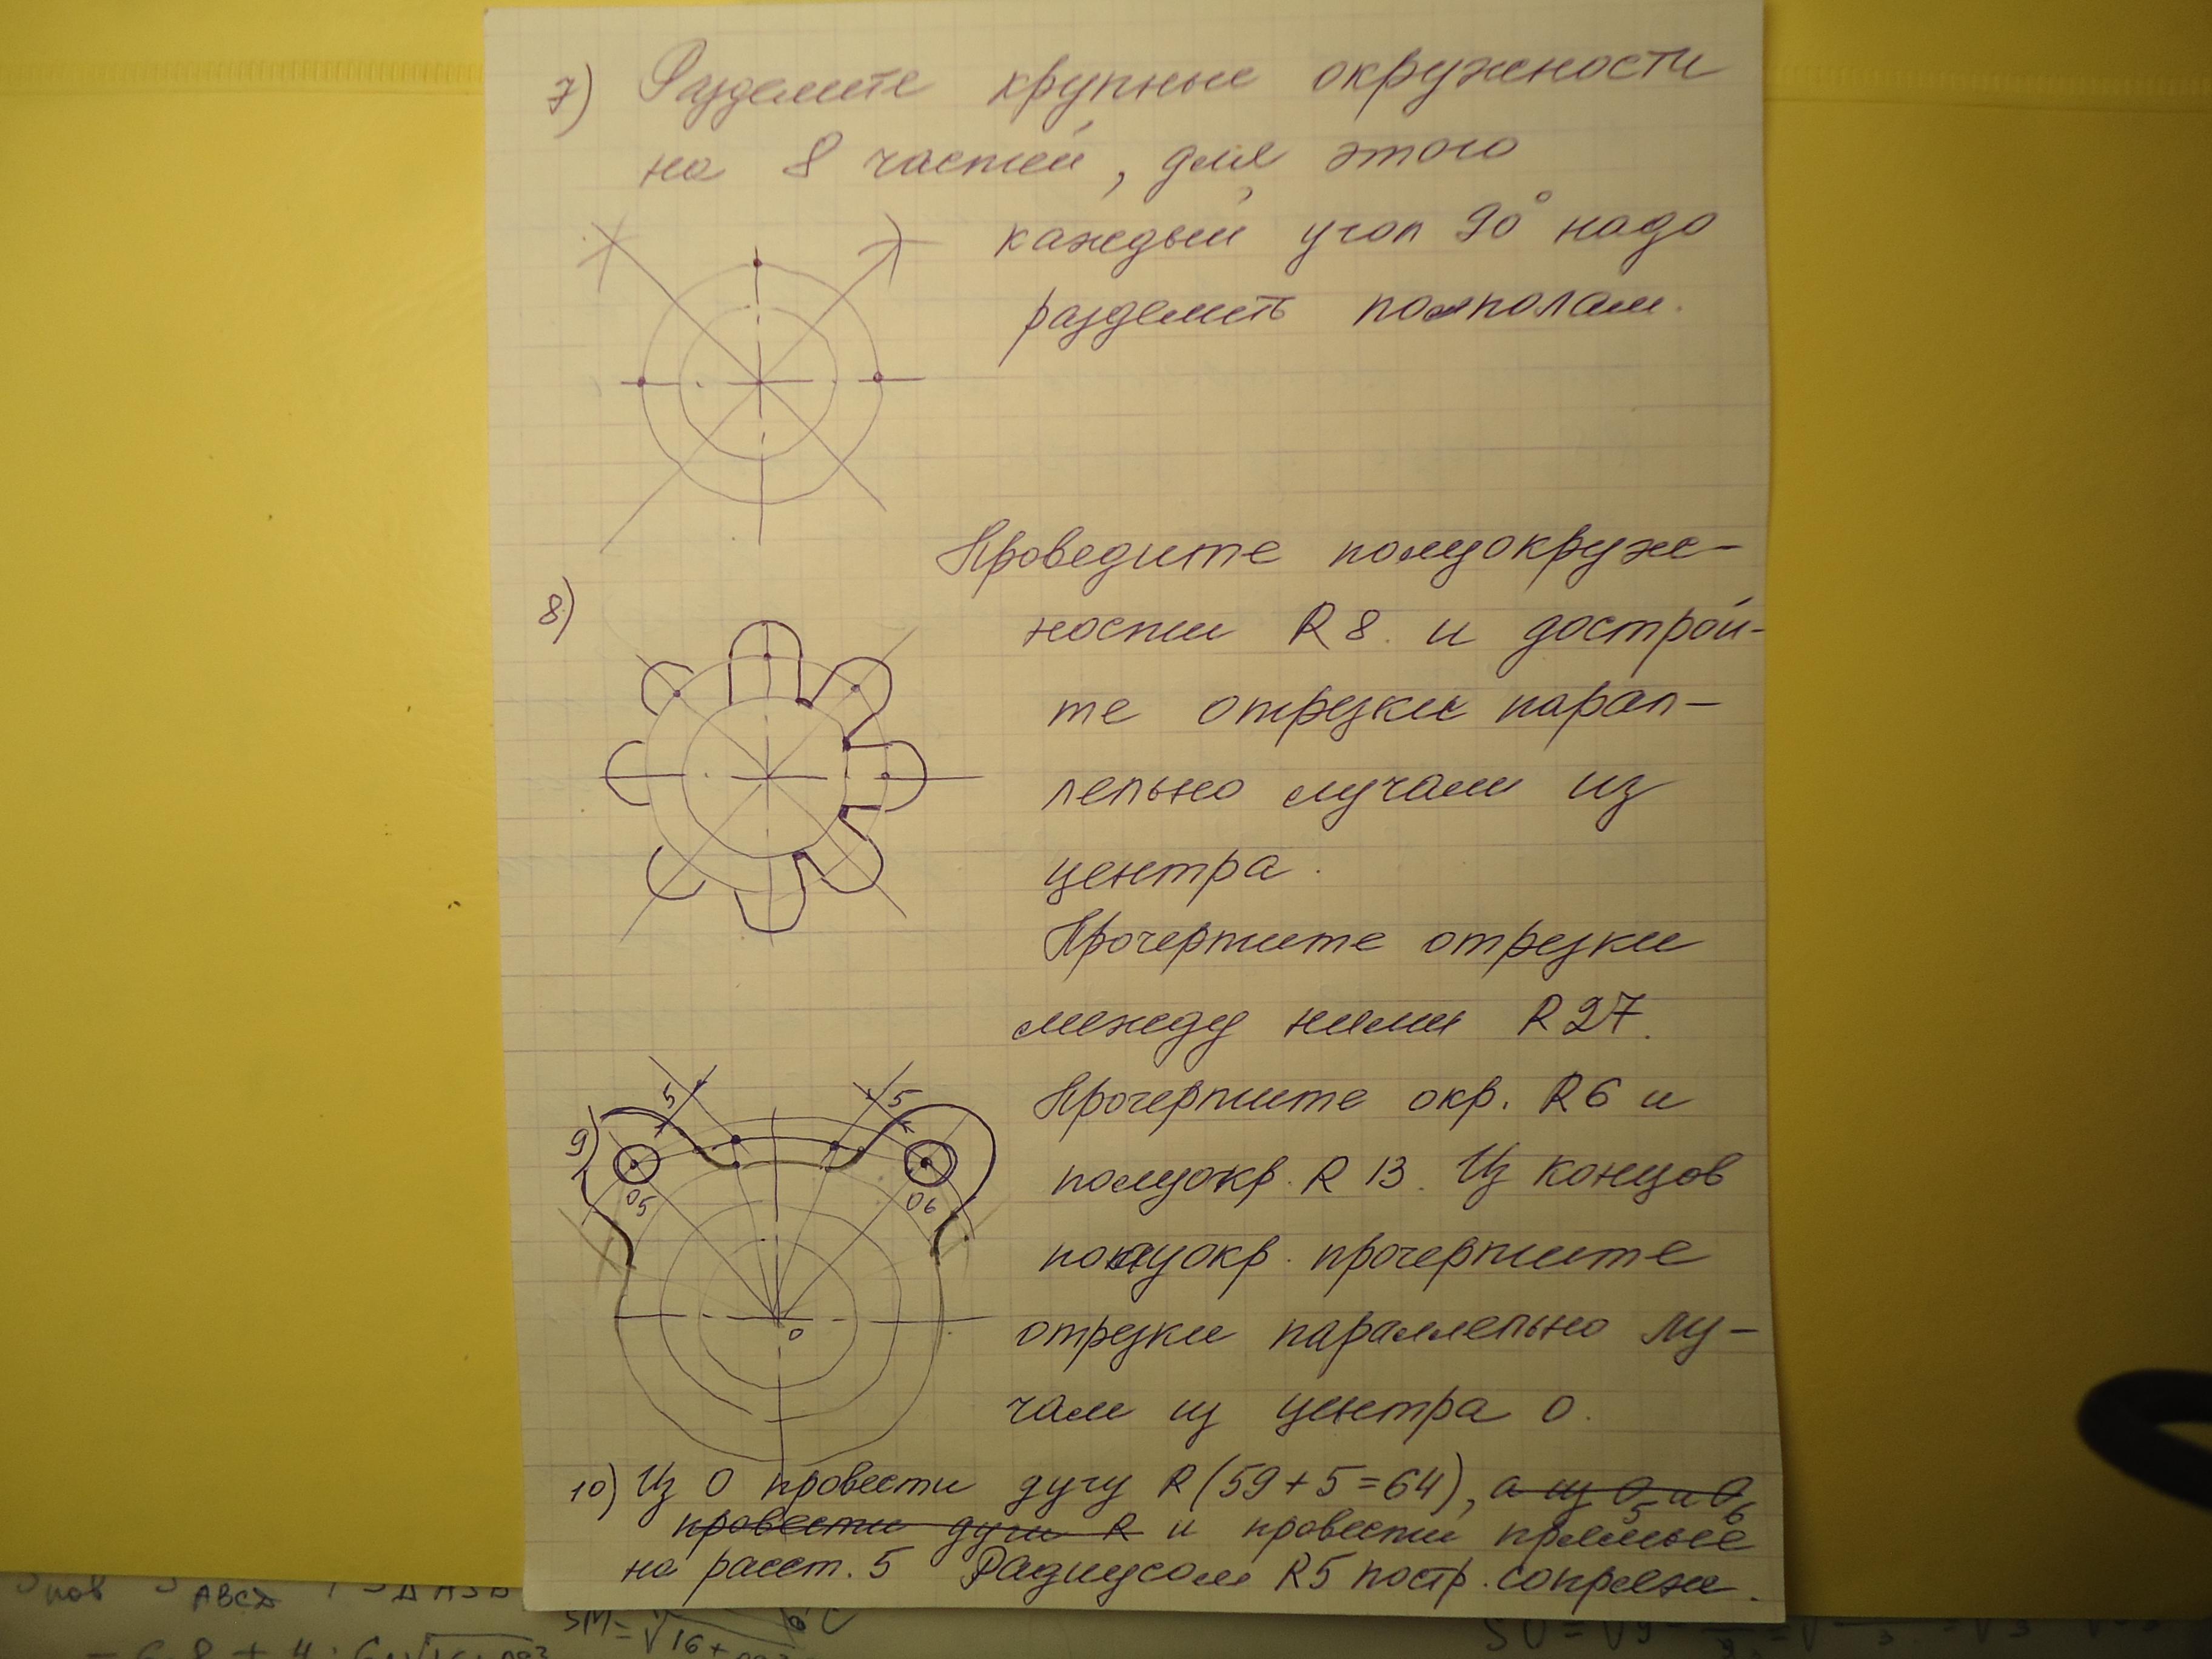 7) Разделите крупные окружности
на 8 частей, для этого
каждый угол 90° надо
разделить пополам.
8) Проведите полуокруж-
ности R 8 и дострой-
те отрезки парал-
лельно лучам из
центра.
Прочертите отрезки
между ними R 27.
9) Прочертите окр. R6 и
полуокр. R 13. Из концов
полуокр. прочертите
отрезки параллельно лу-
чам из центра О.
5
5
O5
O6
O
10) Из О провести дугу R (59+5=64), а из O5 и O6
провести дуги R и провести прямые
на расст. 5 Радиусом R5 постр. сопряж.
S пов S ABCD
SM = √16+